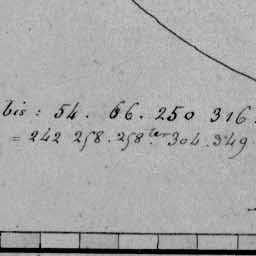 bis : 54. 66. 250 316.
= 242 258. 258 ter 304. 349